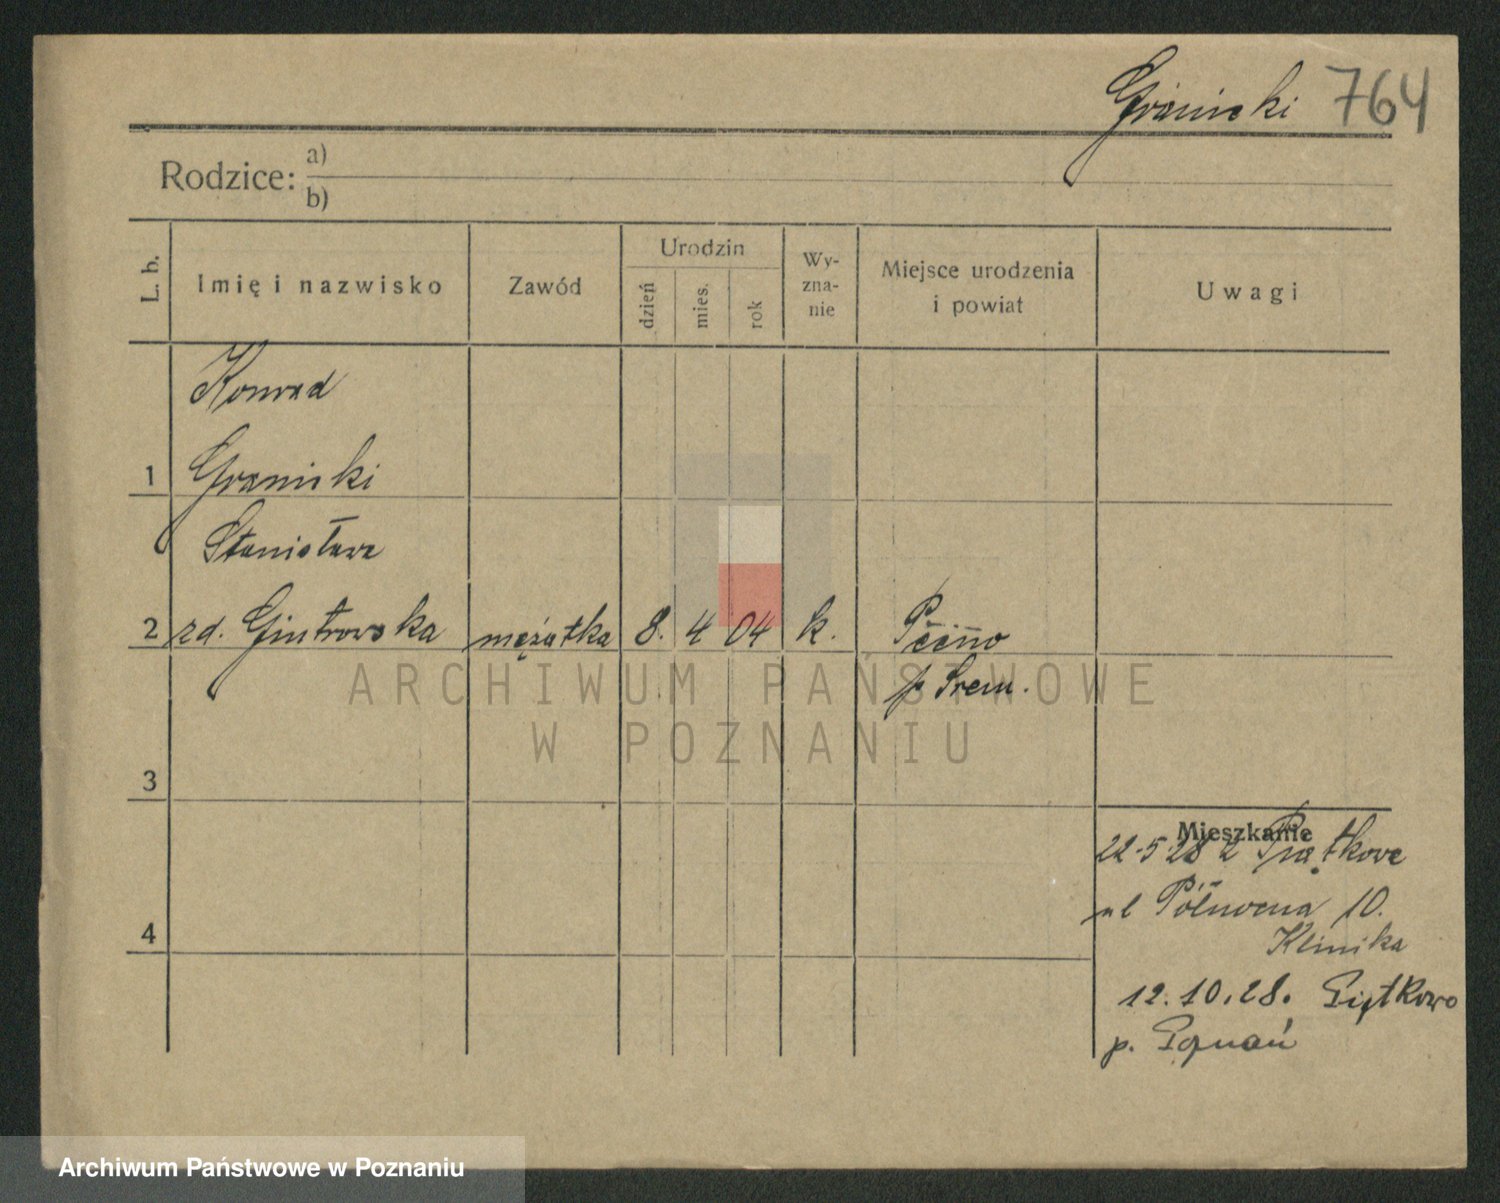 Granicki 764
Rodzice: a)
b)
L. b. Imię i nazwisko Zawód Urodzin dzień mies. rok Wy-zna-nie Miejsce urodzenia i powiat Uwagi
Konrad
1 Granicki
Stanisława
2 zd. Gintrowska mężatka 8. 4 04 k.
p Śrem.
ARCHIWUM PAŃSTWOWE
W POZNANIU
3
Mieszkanie
22-5 28 z Piątkowa
ul Północna 10.
Klinika
4
12.10.28. Piątkowo
p. Poznań
Archiwum Państwowe w Poznaniu